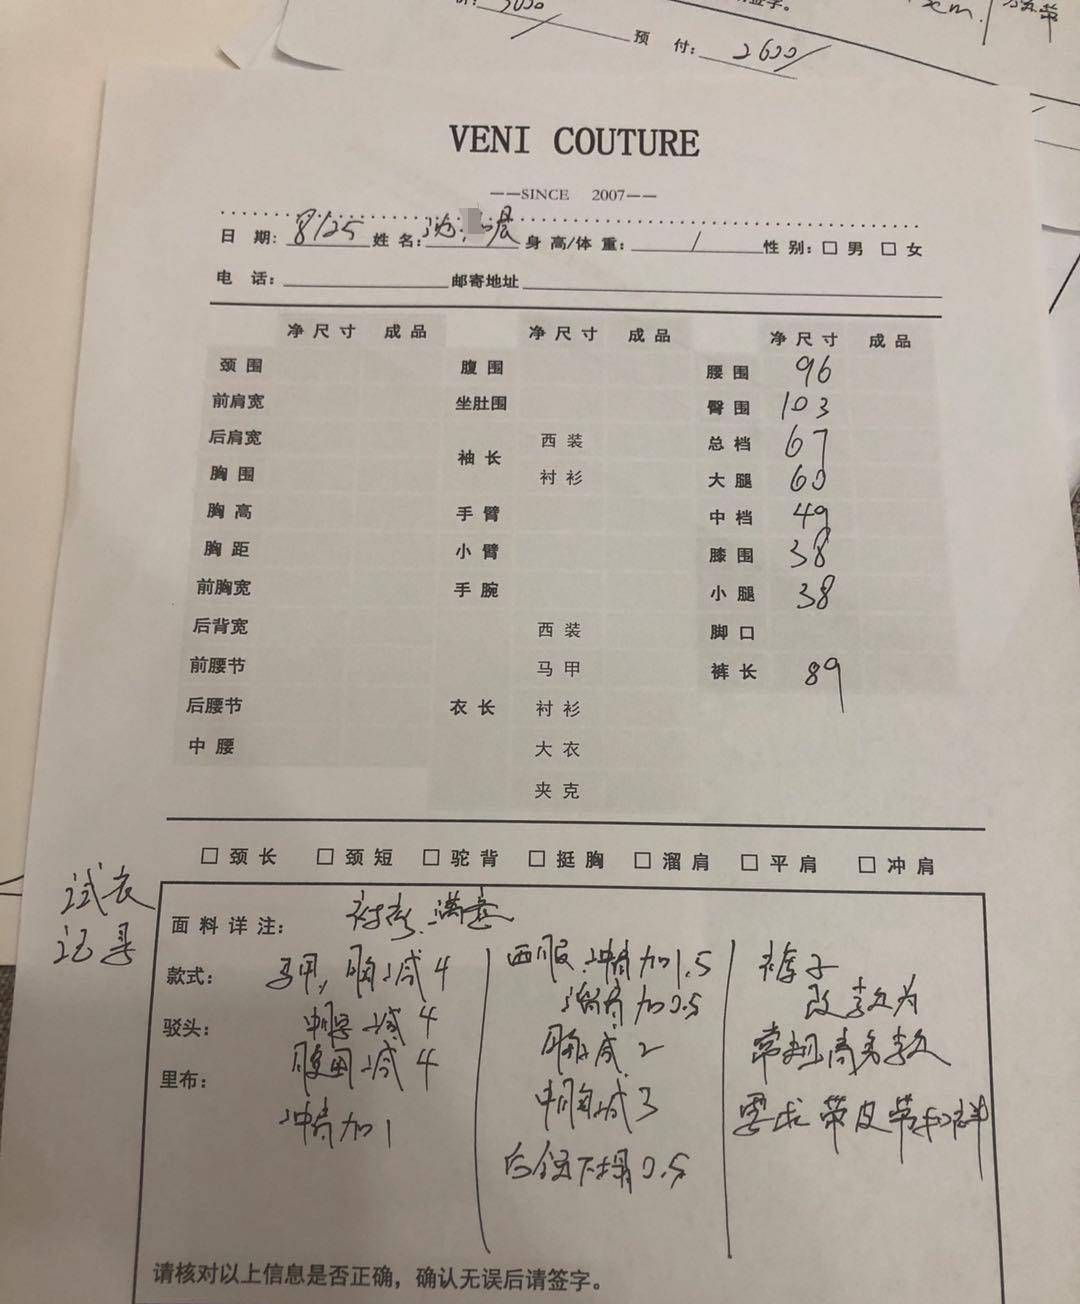 预 付: 2600/
VENI COUTURE
——SINCE 2007——
日 期: 8/25 姓 名: 晨 身 高/体 重: / 性 别: □ 男 □ 女
电 话: 邮寄地址
净 尺 寸 成 品 净 尺 寸 成 品 净 尺 寸 成 品
颈 围 腹 围 腰 围 96
前肩宽 坐肚围 臀 围 103
后肩宽 袖 长 西 装 总 档 67
胸 围 衬 衫 大 腿 60
胸 高 手 臂 中 档 49
胸 距 小 臂 膝 围 38
前胸宽 手 腕 小 腿 38
后背宽 西 装 脚 口
前腰节 马 甲 裤 长 89
后腰节 衣 长 衬 衫
中 腰 大 衣
夹 克
□ 颈 长 □ 颈 短 □ 驼 背 □ 挺 胸 □ 溜 肩 □ 平 肩 □ 冲 肩
试衣
记录
面 料 详 注: 衬衫.满意
款式:
驳头:
里布:
马甲, 胸减4
中腰减4
腹围减4
冲肩加1
西服.冲肩加1.5
溜肩加0.5
胸减2
中腰减3
后领下塌0.5
裤子
改款为
常规商务款
要求带皮带扣袢
请核对以上信息是否正确，确认无误后请签字。